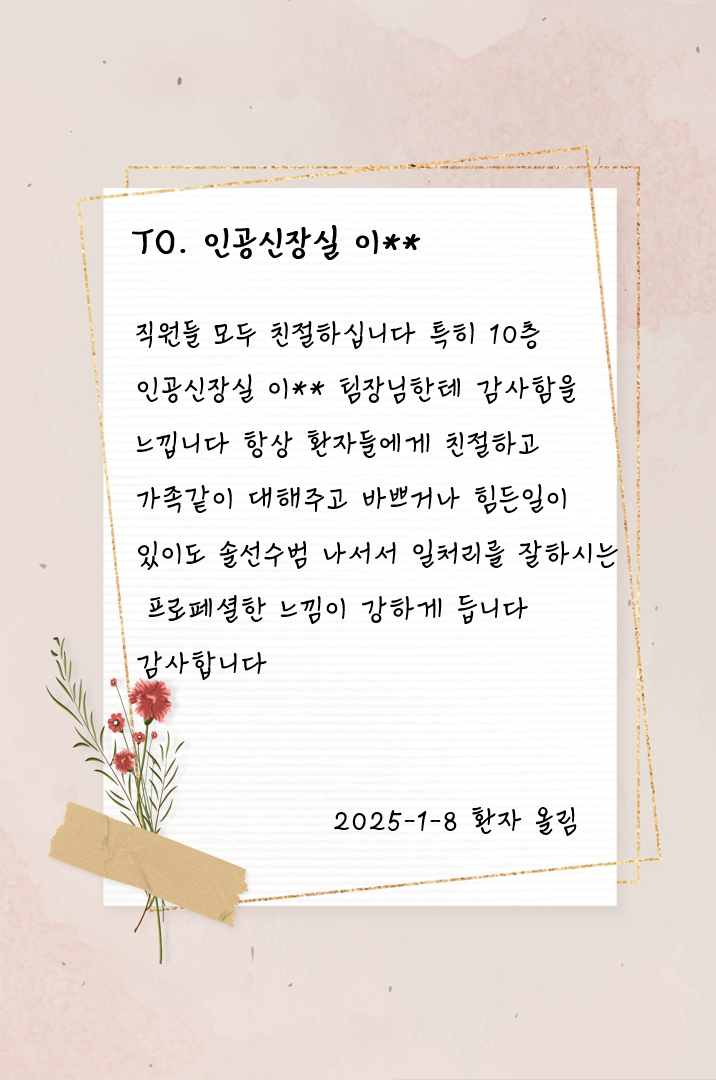 TO. 인공신장실 이**
직원들 모두 친절하십니다 특히 10층
인공신장실 이** 팀장님한테 감사함을
느낍니다 항상 환자들에게 친절하고
가족같이 대해주고 바쁘거나 힘든일이
있이도 솔선수범 나서서 일처리를 잘하시는
프로페셜한 느낌이 강하게 듭니다
감사합니다
2025-1-8 환자 올림